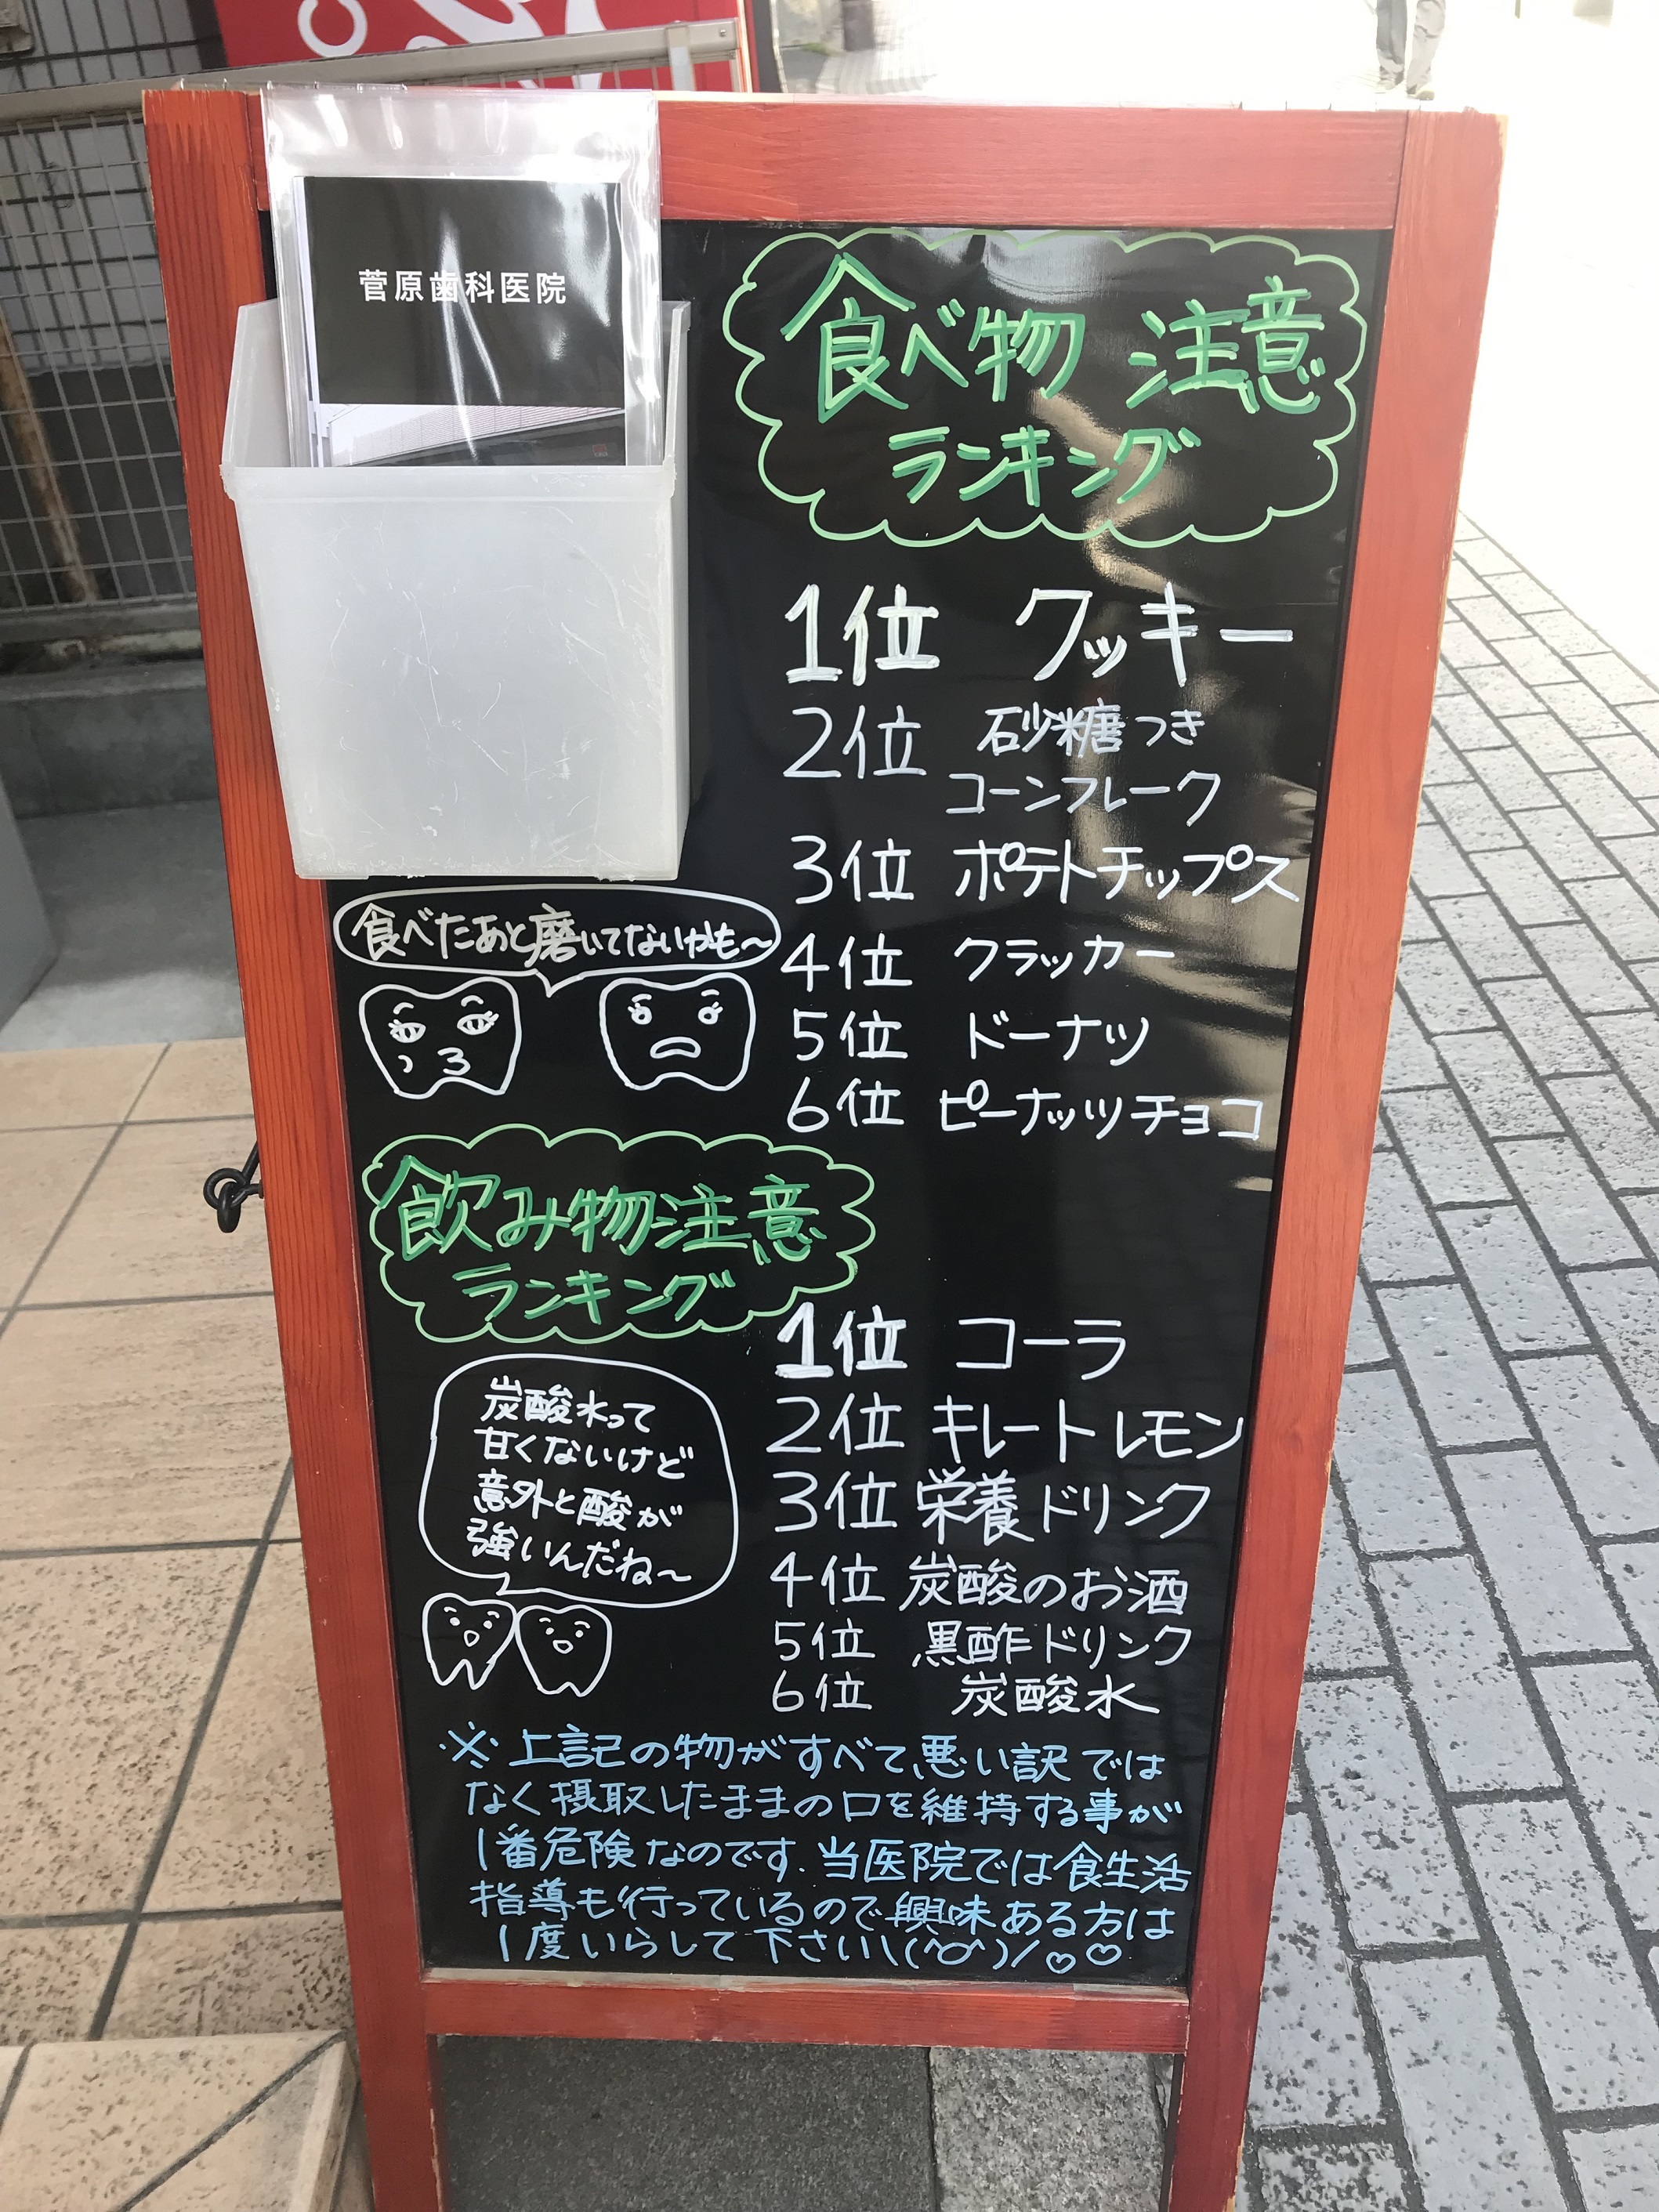 菅原歯科医院
食べ物 注意
ランキング
1位 クッキー
2位 砂糖つき
コーンフレーク
3位 ポテトチップス
4位 クラッカー
5位 ドーナツ
6位 ピーナッツチョコ
食べたあと磨いてないかも～
飲み物注意
ランキング
1位 コーラ
2位 キレートレモン
3位 栄養ドリンク
4位 炭酸のお酒
5位 黒酢ドリンク
6位 炭酸水
炭酸水って
甘くないけど
意外と酸が
強いんだね～
※上記の物がすべて悪い訳では
なく摂取したままの口を維持する事が
1番危険なのです。当医院では食生活
指導も行っているので興味ある方は
1度いらして下さい\(^o^)/♡♡